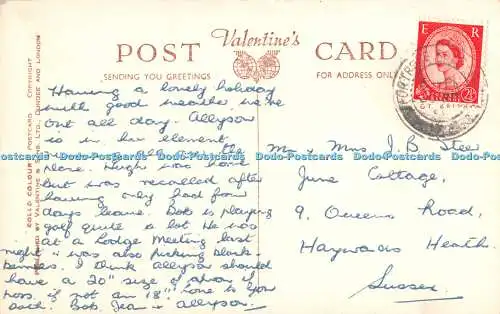 Valentine's
POST CARD
SENDING YOU GREETINGS
FOR ADDRESS ONLY
E R
2½
Having a lovely holiday
with good weather we're
out all day. Allyson
is in her element
all the
plane. Hugh was home
But was recalled after
having only had four
days leave. Bob is playing
golf quite a lot He was
at a Lodge Meeting last
night & was also picking black-
berries. I think Allyson should
have a 20" size of apron if
poss. if not an 18". Love to you
both. Bob Jean & Allyson.
Mr & Mrs J. B Steer
June Cottage,
9 Queens Road,
Haywards Heath,
Sussex.
COLLO COLOUR POSTCARD COPYRIGHT
BY VALENTINE & SONS, LTD., DUNDEE AND LONDON
Postcards-store.com Postcards-store.com Postcards-store.com Postcards-store.com